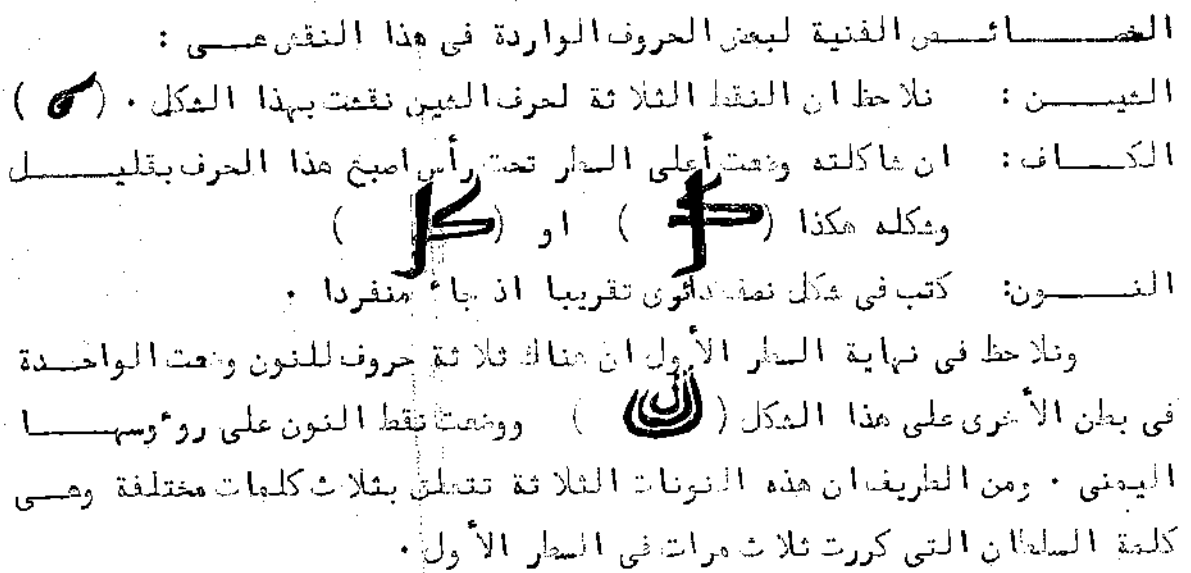 الخصائص الفنية لبعض الحروف الواردة فى هذا النقش هى :
الشين : نلاحظ ان النقط الثلاثة لحرف الشين نقشت بهذا الشكل . ( )
الكاف : ان شاكلته وضعت أعلى السطر تحت رأس اصبع هذا الحرف بقليل
وشكله هكذا ( ) او ( )
النون: كتب فى شكل نصف دائرى تقريبا اذ جاء منفردا .
ونلاحظ فى نهاية السطر الأول ان هناك ثلاثة حروف للنون وضعت الواحدة
فى بطن الأخرى على هذا الشكل ( ) ووضعت نقط النون على روءوسها
اليمنى . ومن الطريف ان هذه النونات الثلاثة تتعلق بثلاث كلمات مختلفة وهى
كلمة السلطان التى كررت ثلاث مرات فى السطر الأول .